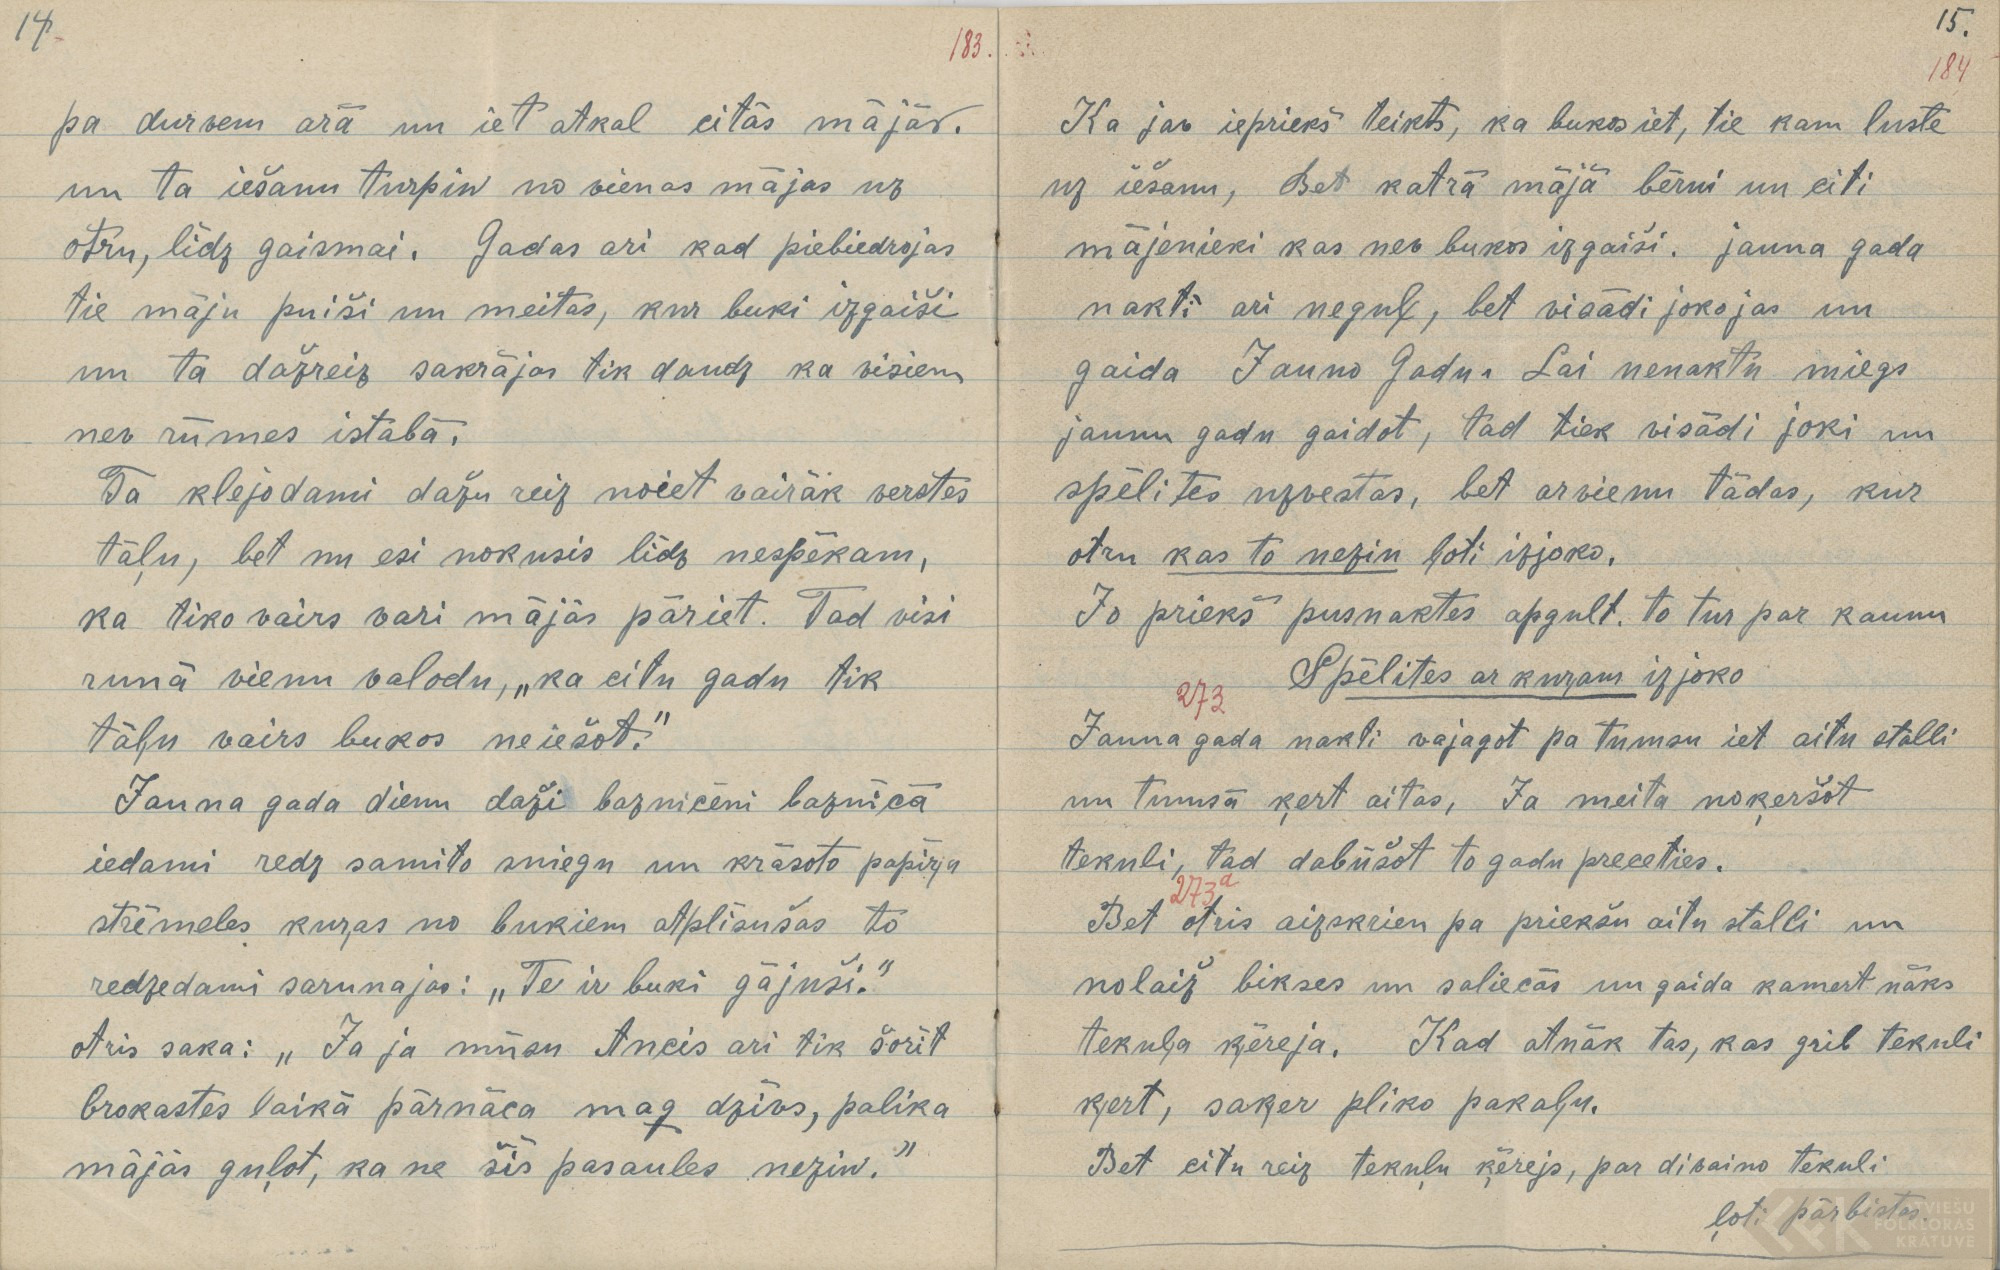 14.
183.
pa durvem ārā un iet atkal citās mājās.
un ta iešanu turpin no vienas mājas uz
otru, līdz gaismai. Gadas ari kad piebiedrojas
tie māju puiši un meitas, kur buki izgaiši
un ta dažreiz sakrājas tik daudz ka visiem
nev rūmes istabā.
Tā klejodami dažu reiz noiet vairāk verstes
tāļu, bet nu esi nokusis līdz nespēkam,
ka tiko vairs vari mājās pāriet. Tad visi
runā vienu valodu, „ka citu gadu tik
tāļu vairs bukos neiešot."
Jauna gada dienu daži baznicēni baznīcā
iedami redz samito sniegu un krāsoto papīŗa
strēmeles kuŗas no bukiem atplīsušas to
redzedami sarunajas: „Te ir buki gājuši."
otris saka: „Ja ja mūsu Ancis ari tik šorīt
brokastes laikā pārnāca maq dzīvs, palika
mājās guļot, ka ne šīs pasaules nezin."
15.
184
Ka jav iepriekš teikts, ka bukos iet, tie kam luste
uz iešanu, Bet katrā mājā bērni un citi
mājenieki kas nev bukos izgaiši. jauna gada
nakti ari neguļ, bet visādi jokojas un
gaida Jauno Gadu. Lai nenaktu miegs
jaunu gadu gaidot, tad tiek visādi joki un
spēlites uzvestas, bet arvienu tādas, kur
otru kas to nezin ļoti izjoko.
Jo priekš pusnaktes apgult. to tur par kaunu
Spēlites ar kuŗam izjoko
273
Jauna gada nakti vajagot pa tumsu iet aitu stalli
un tumsā ķert aitas, Ja meita noķeršot
tekuli, tad dabūšot to gadu preceties.
273a
Bet otris aizskrien pa priekšu aitu stalli un
nolaiž bikses un saliecās un gaida kamert nāks
tekuļa ķēreja. Kad atnāk tas, kas grib tekuli
ķert, saķer pliko pakaļu.
Bet citu reiz tekuļu ķērejs, par divaino tekuli
ļoti pārbistas.
LATVIEŠU
FOLKLORAS
KRĀTUVE